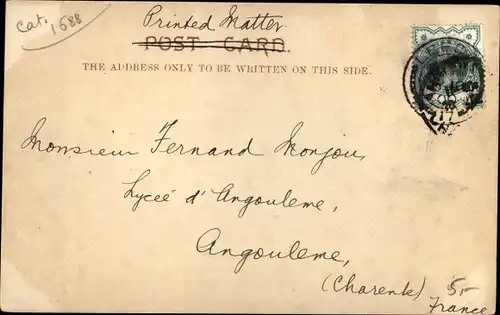 Cat. 1688
Printed Matter
POST CARD.
THE ADDRESS ONLY TO BE WRITTEN ON THIS SIDE.
Monsieur Fernand Monjou,
Lycée d'Angouleme,
Angouleme,
(Charente)
5,-
France